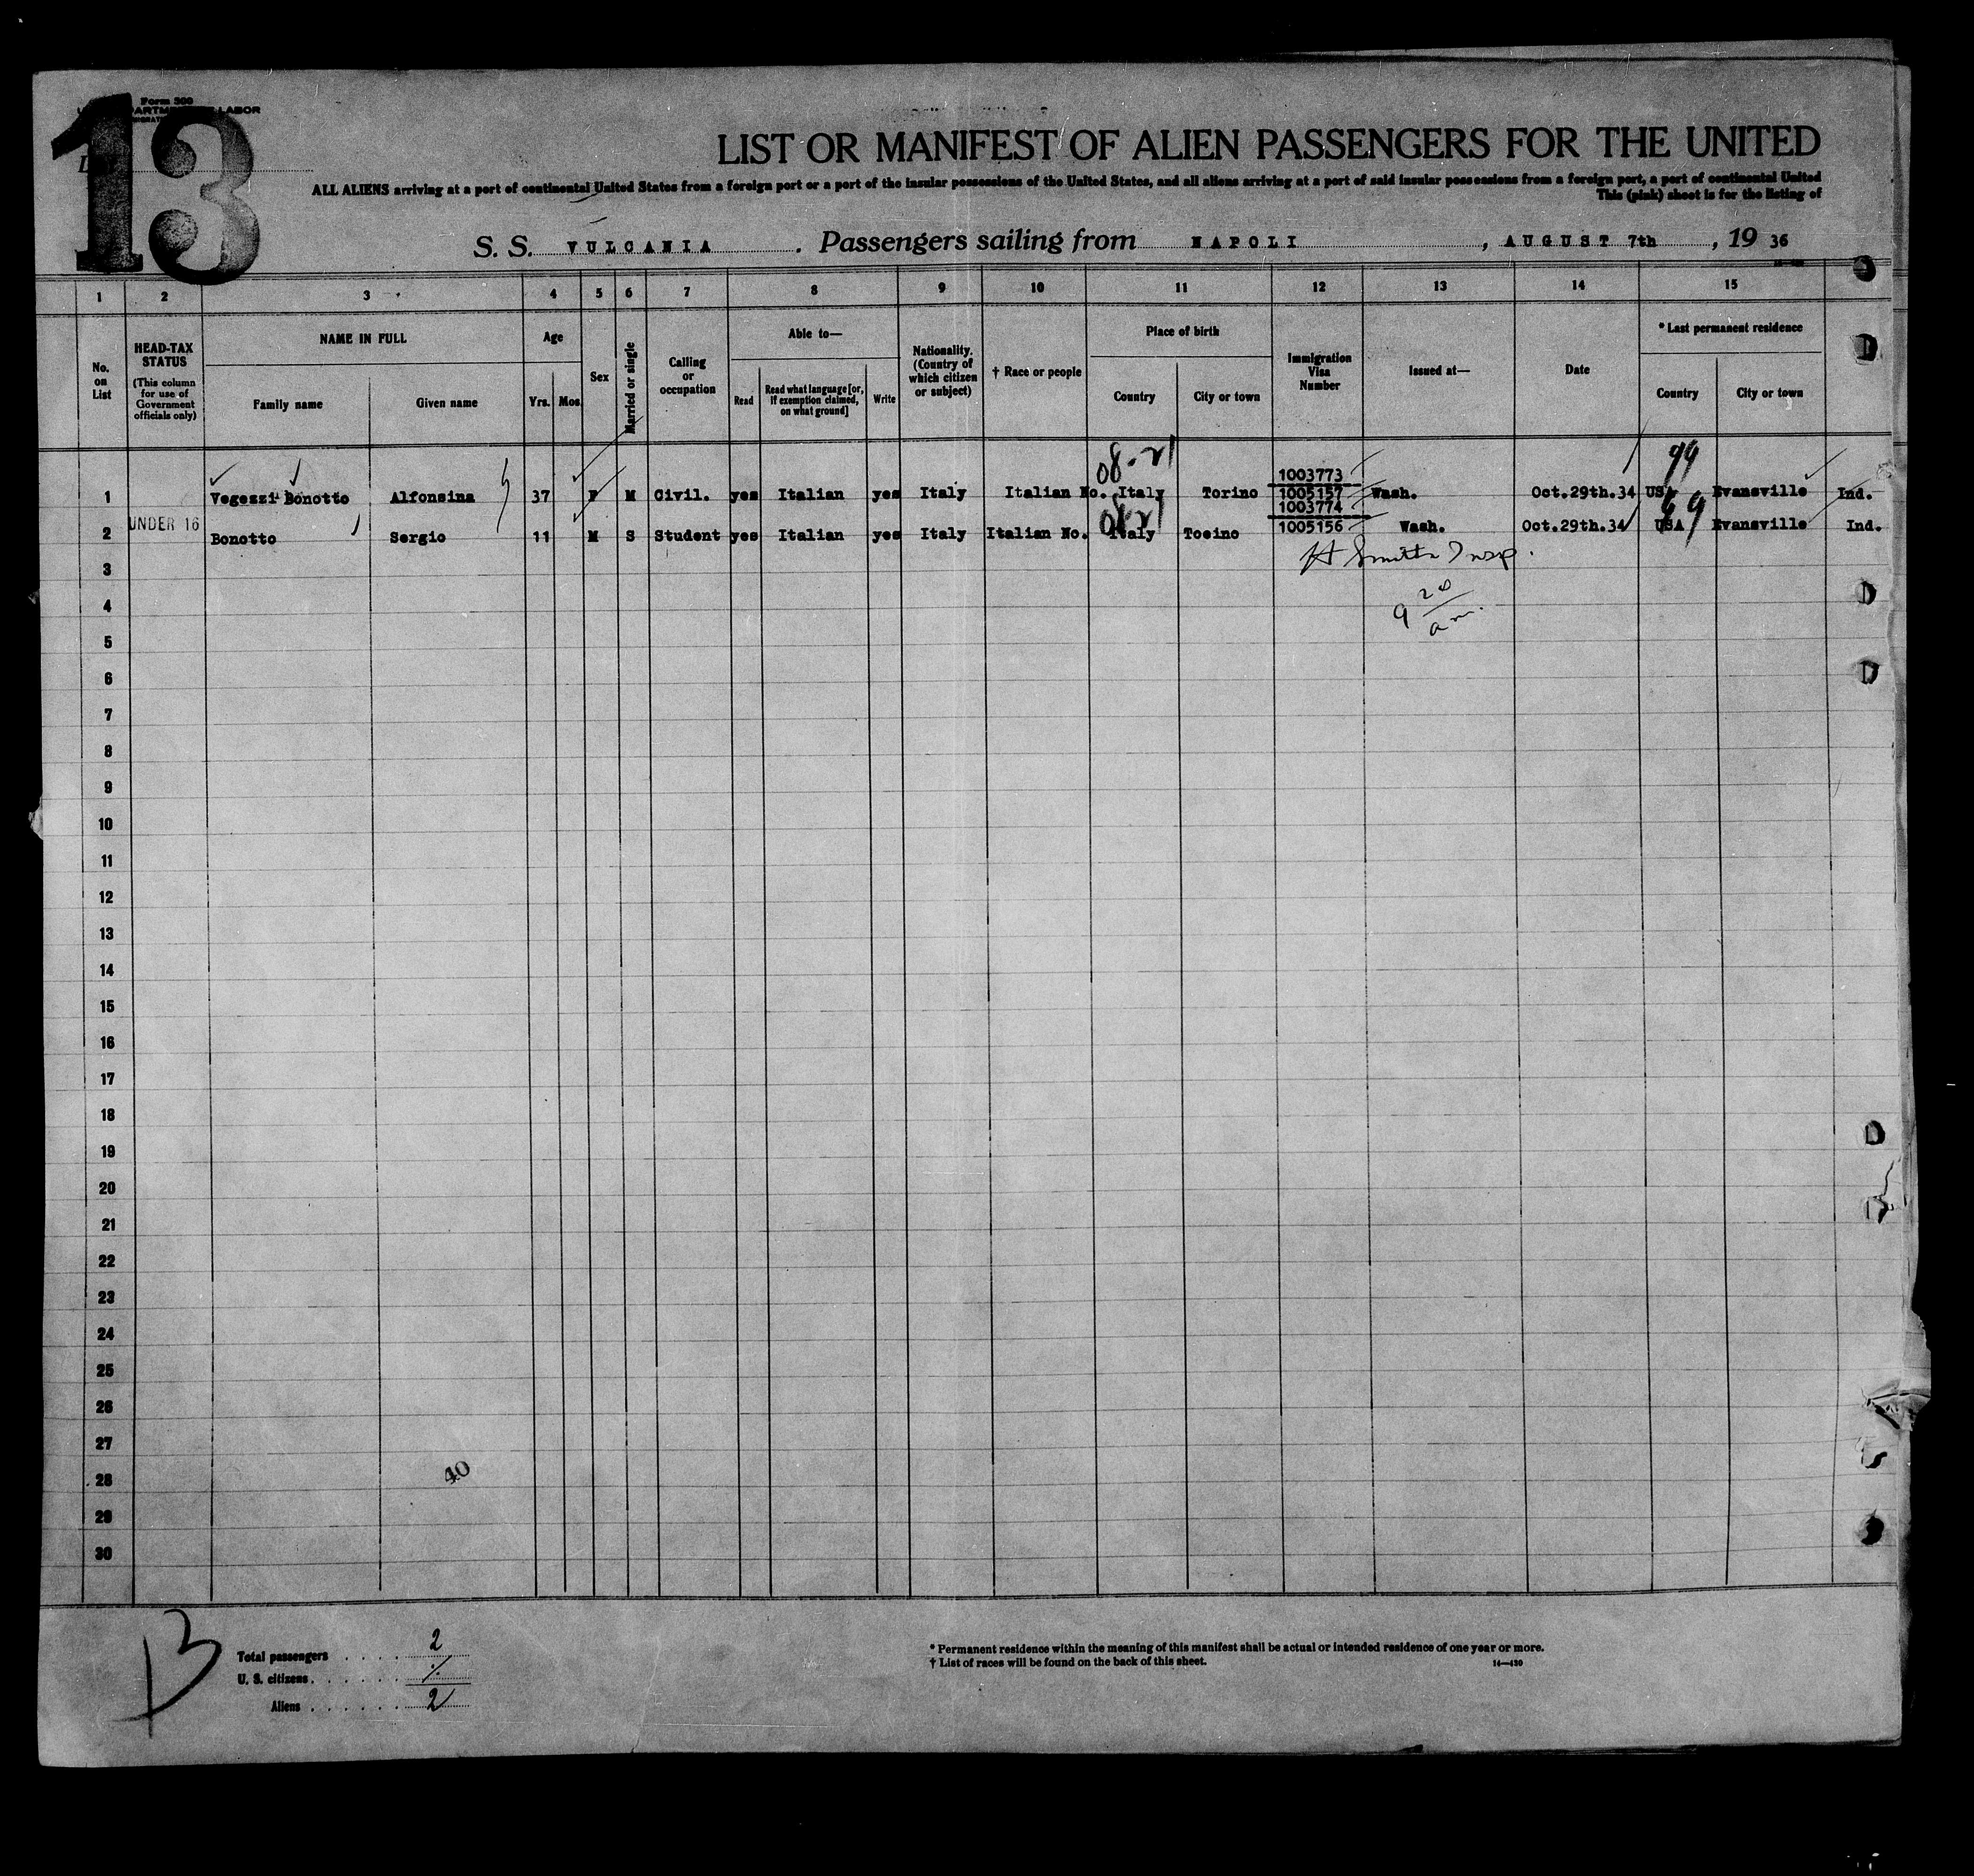 Form 500
LABOR
13
LIST OR MANIFEST OF ALIEN PASSENGERS FOR THE UNITED
ALL ALIENS arriving at a port of continental United States from a foreign port or a port of the insular possessions of the United States, and all aliens arriving at a port of said insular possessions from a foreign port, a port of continental United
This (pink) sheet is for the listing of
S. S. VULCANIA. Passengers sailing from NAPOLI, AUGUST 7th, 19 36
1 2 3 4 5 6 7 8 9 10 11 12 13 14 15
No. on List
HEAD-TAX STATUS (This column for use of Government officials only)
NAME IN FULL
Family name Given name
Age
Yrs. Mos.
Sex
Married or single
Calling or occupation
Able to—
Read
Read what language [or, if exemption claimed, on what ground]
Write
Nationality. (Country of which citizen or subject)
† Race or people
Place of birth
Country City or town
Immigration Visa Number
Issued at—
Date
* Last permanent residence
Country City or town
08-21 1003773 99
1 Vegezzi Bonotto Alfonsina 37 F M Civil. yes Italian yes Italy Italian No. Italy Torino 1005157 Wash. Oct.29th.34 USA Evansville Ind.
1003774
UNDER 16
2 Bonotto Sergio 11 M S Student yes Italian yes Italy Italian No. Italy Tocino 1005156 Wash. Oct.29th.34 USA Evansville Ind.
H Smith Insp.
3
9 20 am.
4
5
6
7
8
9
10
11
12
13
14
15
16
17
18
19
20
21
22
23
24
25
26
27
28
40
29
30
13
Total passengers 2
U. S. citizens
Aliens 2
* Permanent residence within the meaning of this manifest shall be actual or intended residence of one year or more.
† List of races will be found on the back of this sheet. 14—430